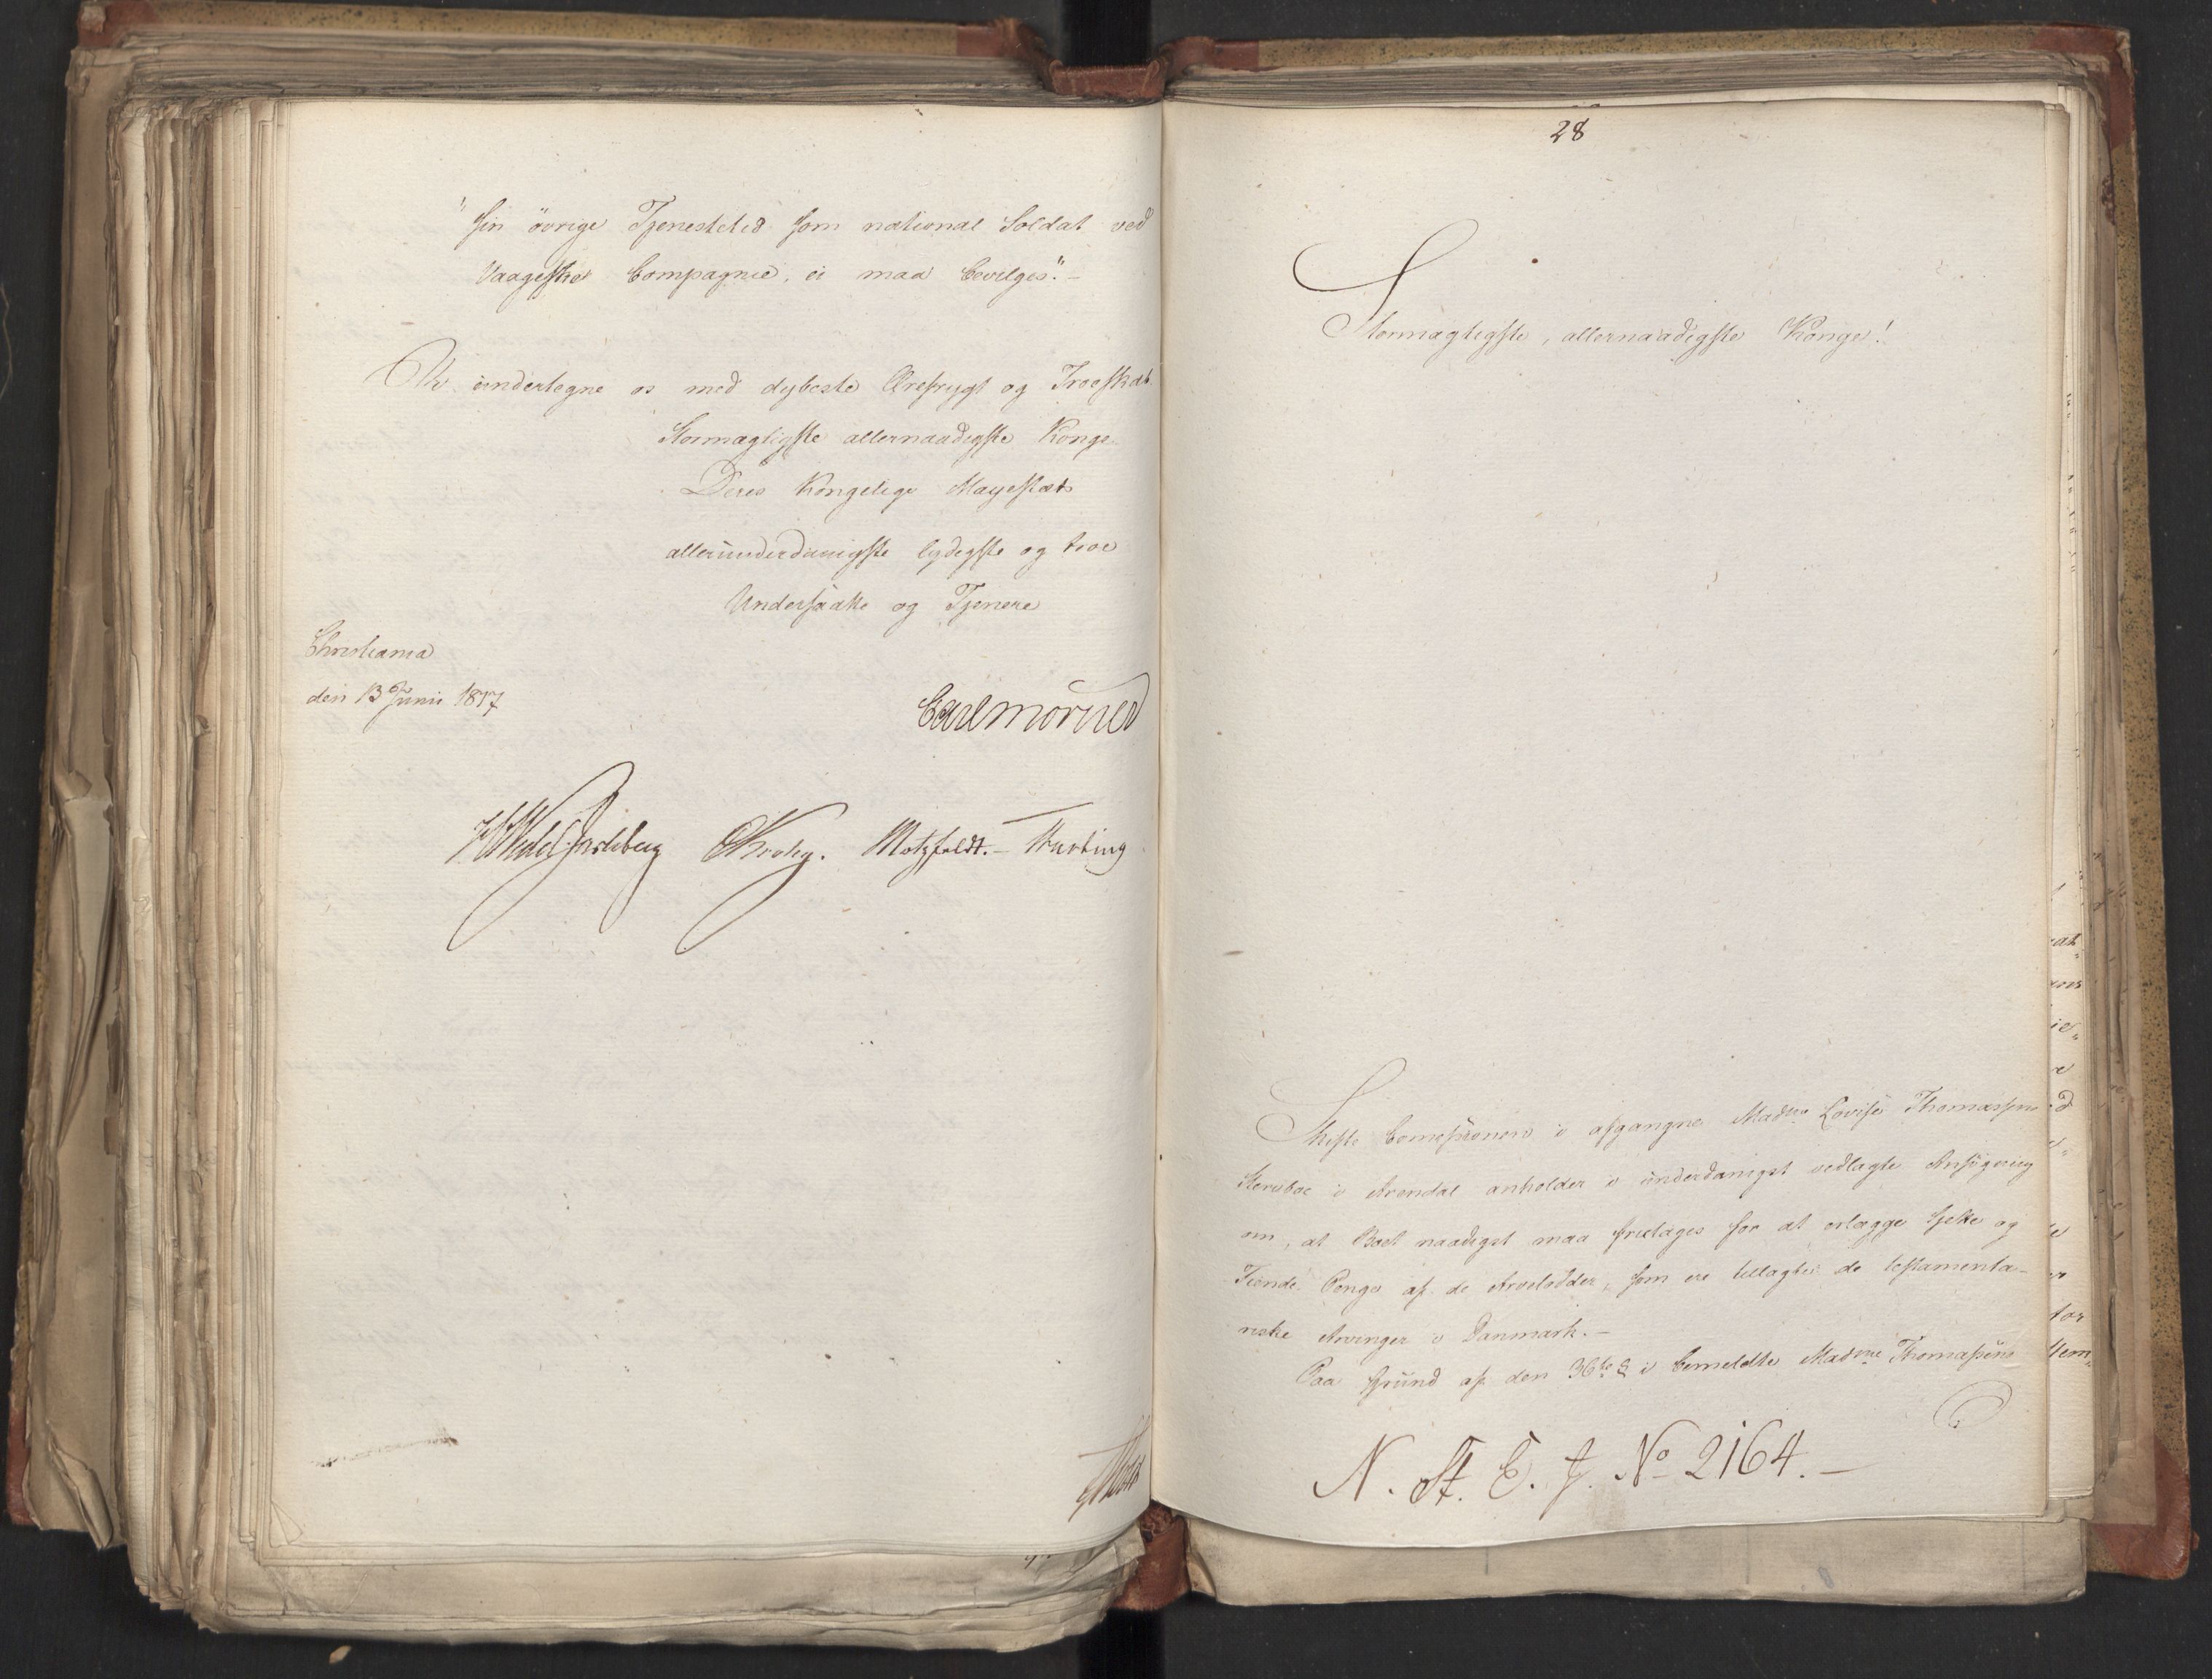 "sin övrige Tjenestetid som national Soldat ved
Vaageske Compagnie, ei maa bevilges." -
Vi undertegne os med dybeste Ærefrygt og Troeskab
Stormægtigste allernaadigste Konge
Deres Kongelige Mayestæts
allerunderdanigste lydigste og troe
Undersaatte og Tjenere
Christiania
den 13 Junii 1817
Carl Mörner
HWedel Jarlsberg Krohg. Motzfeldt. -
28
Stormægtigste, allernaadigste Konge!
Skifte Comissionen i afgangne Madme Lovise Thomassens
Stervboe i Arendal anholder i underdanigst vedlagte Ansögning
om, at Boet naadigst maa fritages for at erlægge Sjette og
Tiende Penge af de Arvelodder, som ere tillagte de testamenta-
riske Arvinger i Danmark. -
Paa Grund af den 36te § i bemeldte Madme Thomassens
N. St. E. J. No 2164. -